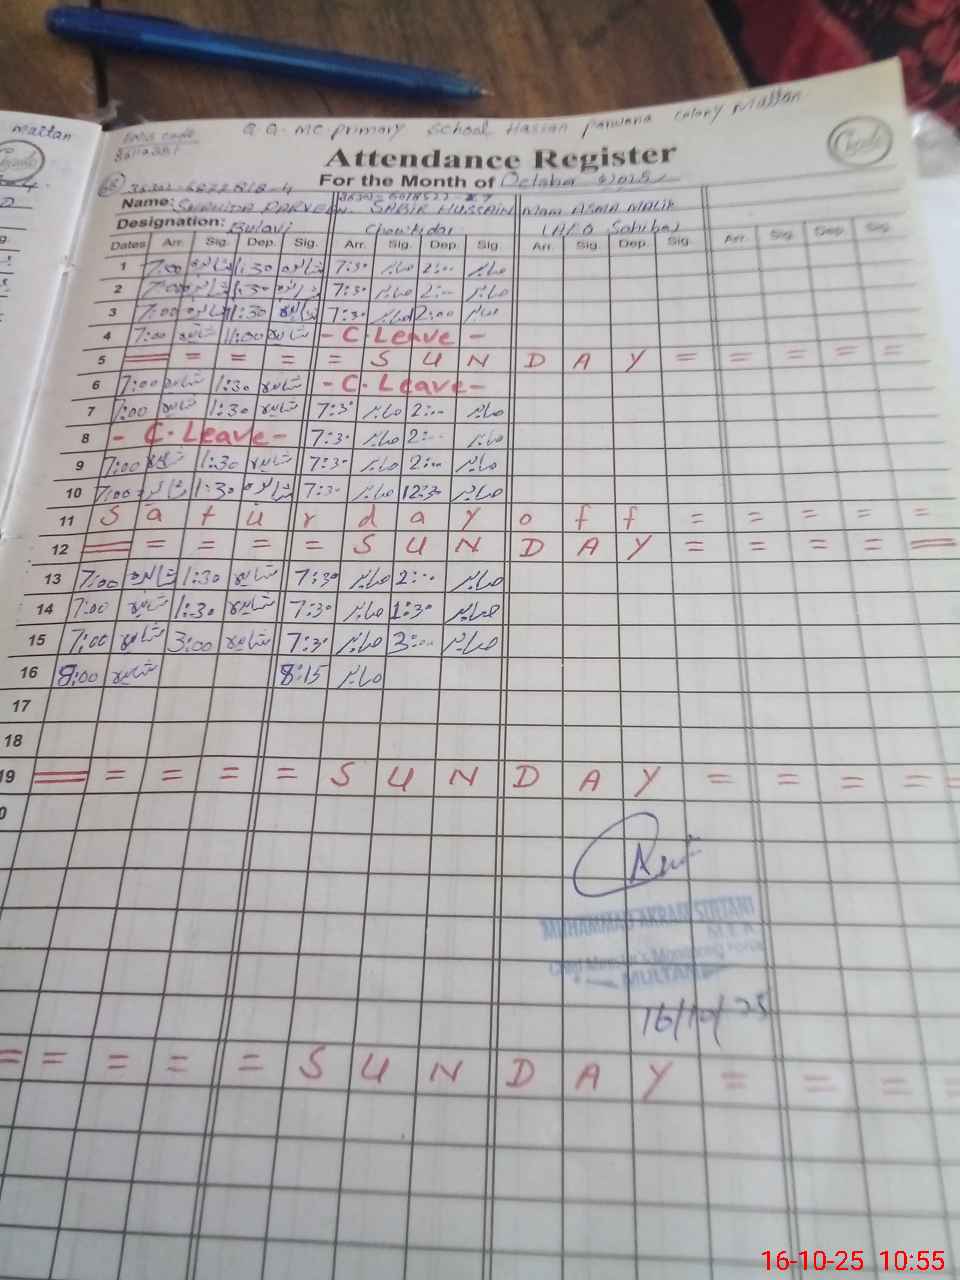 Mattan
G.G. MC primary School Hassan parwana colony Multan
Attendance Register
For the Month of October 2025
Name: SHAHIDA PARVEEN SABIR HUSSAIN Mam ASMA MALIK
Designation: Bulavi Chowkidar Sahiba
Dates Arr. Sig. Dep. Sig. Arr. Sig. Dep. Sig. Arr. Sig. Dep. Sig. Arr. Sig. Dep. Sig.
1 7:00 شاہدہ 1:30 شاہدہ 7:30 صابر 2:00 صابر
2 7:00 شاہدہ 1:30 شاہدہ 7:30 صابر 2:00 صابر
3 7:00 شاہدہ 11:30 شاہدہ 7:30 صابر 2:00 صابر
4 7:00 شاہدہ 11:00 شاہدہ - C. Leave -
5 = = = = = S U N D A Y = = = = =
6 7:00 شاہدہ 1:30 شاہدہ - C. Leave -
7 7:00 شاہدہ 1:30 شاہدہ 7:30 صابر 2:00 صابر
8 - C. Leave - 7:30 صابر 2:00 صابر
9 7:00 شاہدہ 1:30 شاہدہ 7:30 صابر 2:00 صابر
10 7:00 شاہدہ 1:30 شاہدہ 7:30 صابر 12:30 صابر
11 S a t u r d a y o f f = = = = =
12 = = = = = S U N D A Y = = = = =
13 7:00 شاہدہ 1:30 شاہدہ 7:30 صابر 2:00 صابر
14 7:00 شاہدہ 1:30 شاہدہ 7:30 صابر 1:30 صابر
15 7:00 شاہدہ 3:00 شاہدہ 7:30 صابر 3:00 صابر
16 8:00 شاہدہ 8:15 صابر
17
18
19 = = = = = S U N D A Y = = = = =
MUHAMMAD AKRAM
M.E.A
Chief Minister's Monitoring Force
MULTAN
16/10/25
= = = = = S U N D A Y = = = =
16-10-25 10:55